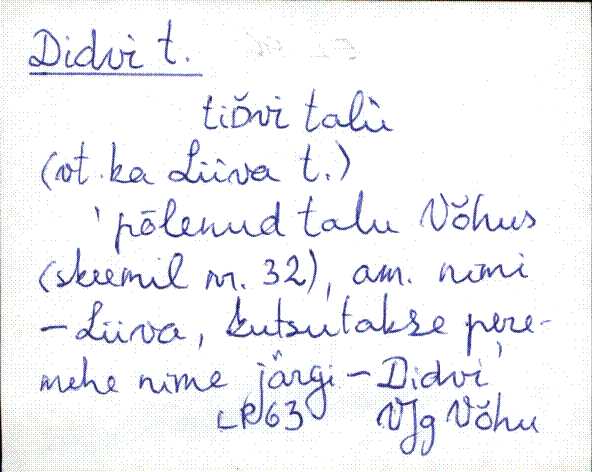 Didvi t.
tiδvi talù
(vt. ka Liiva t.)
'põlenud talu Võhus
(skeemil nr. 32), am. nimi
– Liiva, kutsutakse pere-
mehe nime järgi – Didvi'
LR 63 VJg Võhu